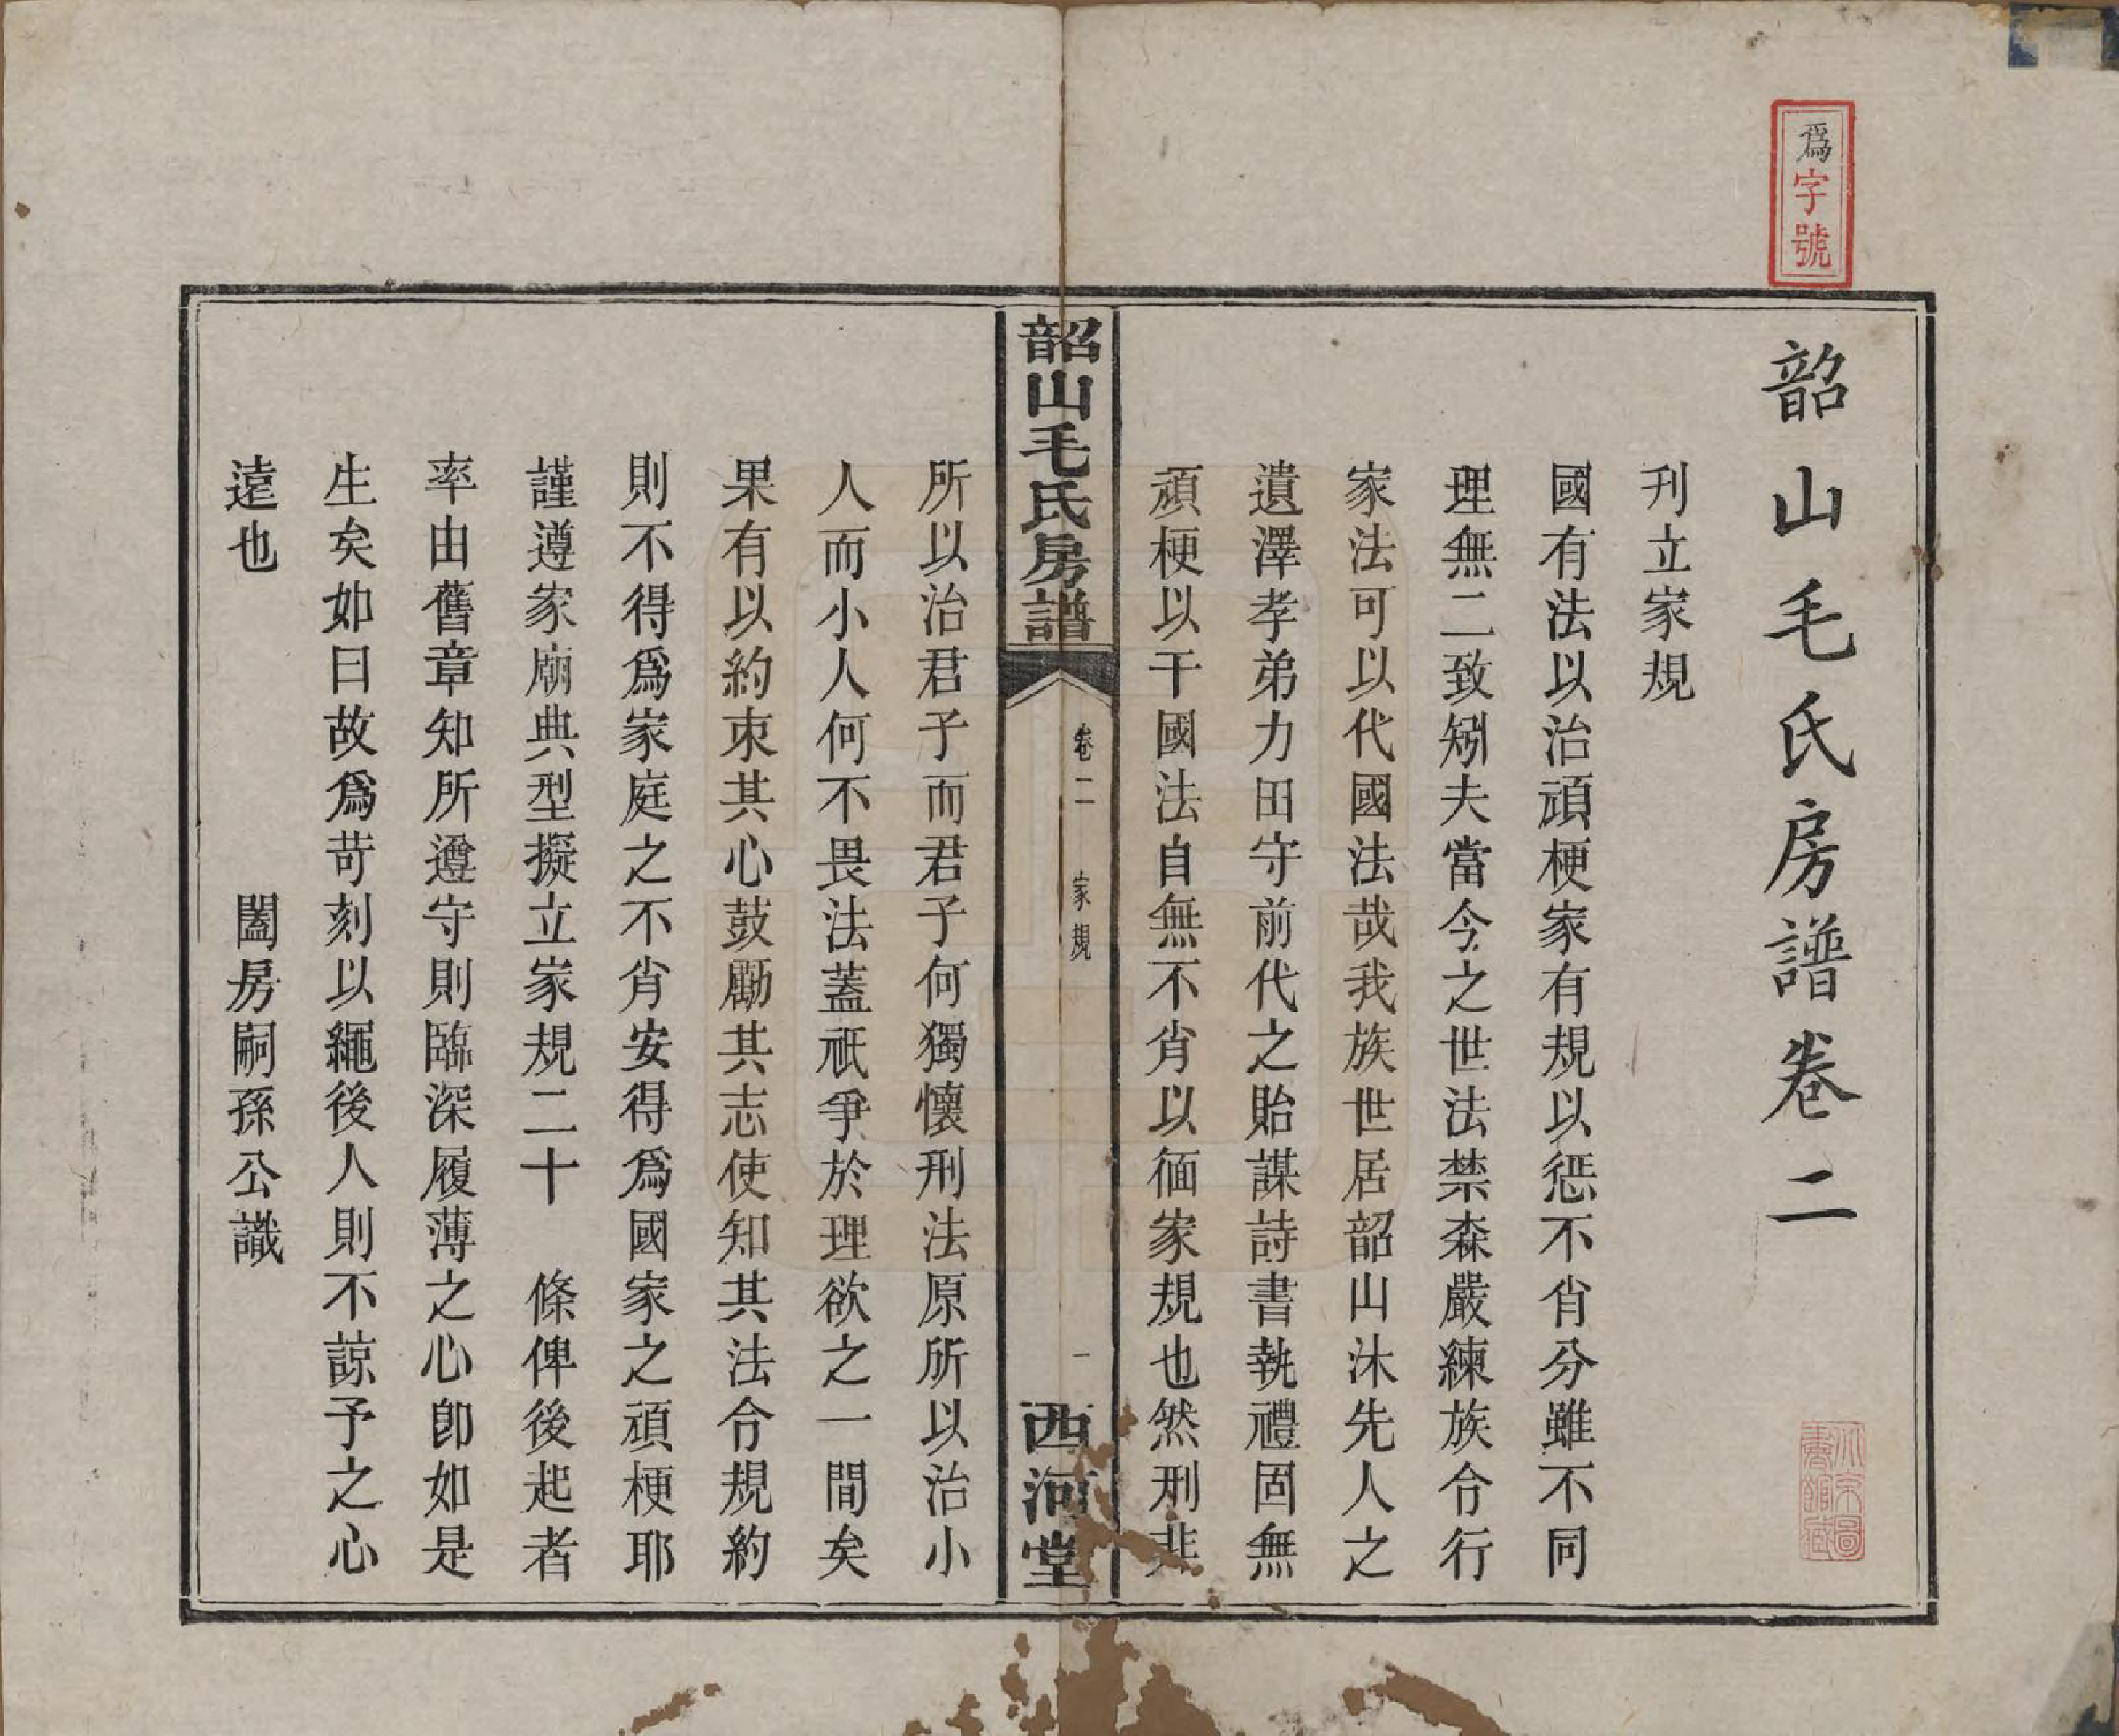 爲字號
韶山毛氏房譜卷二
刋立家規
國有法以治頑梗家有規以惩不肖分雖不同
理無二致矧夫當今之世法禁森嚴練族令行
家法可以代國法哉我族世居韶山沐先人之
遺澤孝弟力田守前代之貽謀詩書執禮固無
頑梗以干國法自無不肖以偭家規也然刑非
韶山毛氏房譜
卷二
家規
一
西河堂
所以治君子而君子何獨懷刑法原所以治小
人而小人何不畏法蓋祇爭於理欲之一間矣
果有以約束其心鼓勵其志使知其法令規約
則不得爲家庭之不肖安得爲國家之頑梗耶
謹遵家廟典型擬立家規二十 條俾後起者
率由舊章知所遵守則臨深履薄之心卽如是
生矣如曰故爲苛刻以繩後人則不諒予之心
遠也
闔房嗣孫公識